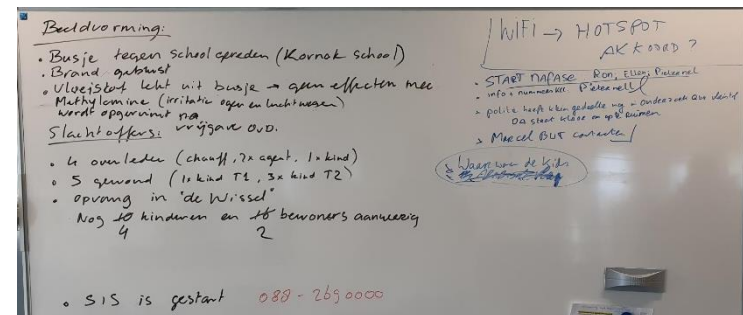 Beeldvorming:
• Busje tegen school gereden (Kornak school)
• Brand geblust
• Vloeistof lekt uit busje → geen effecten mee
Methylamine (irritatie ogen en luchtwegen)
wordt opgeruimd na
Slachtoffers: vrijgave OVD.
• 4 overleden (chauff, 2x agent, 1x kind)
• 5 gewond (1x kind T1, 3x kind T2)
• opvang in "de Wissel"
Nog 10 kinderen en 16 bewoners aanwezig
4 2
• SIS is gestart 088-2690000
WIFI → HOTSPOT
AKKOORD?
• START NAFASE Ron, Ellen, Pieternel
• info + nummer Pieternel
• politie heeft klein gedeelte nog
OA staat klaar om op te ruimen
> Marcel BUT
Waar van de kids